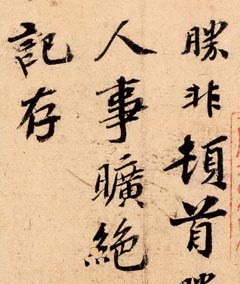 勝非頓首
人事曠絶
記存